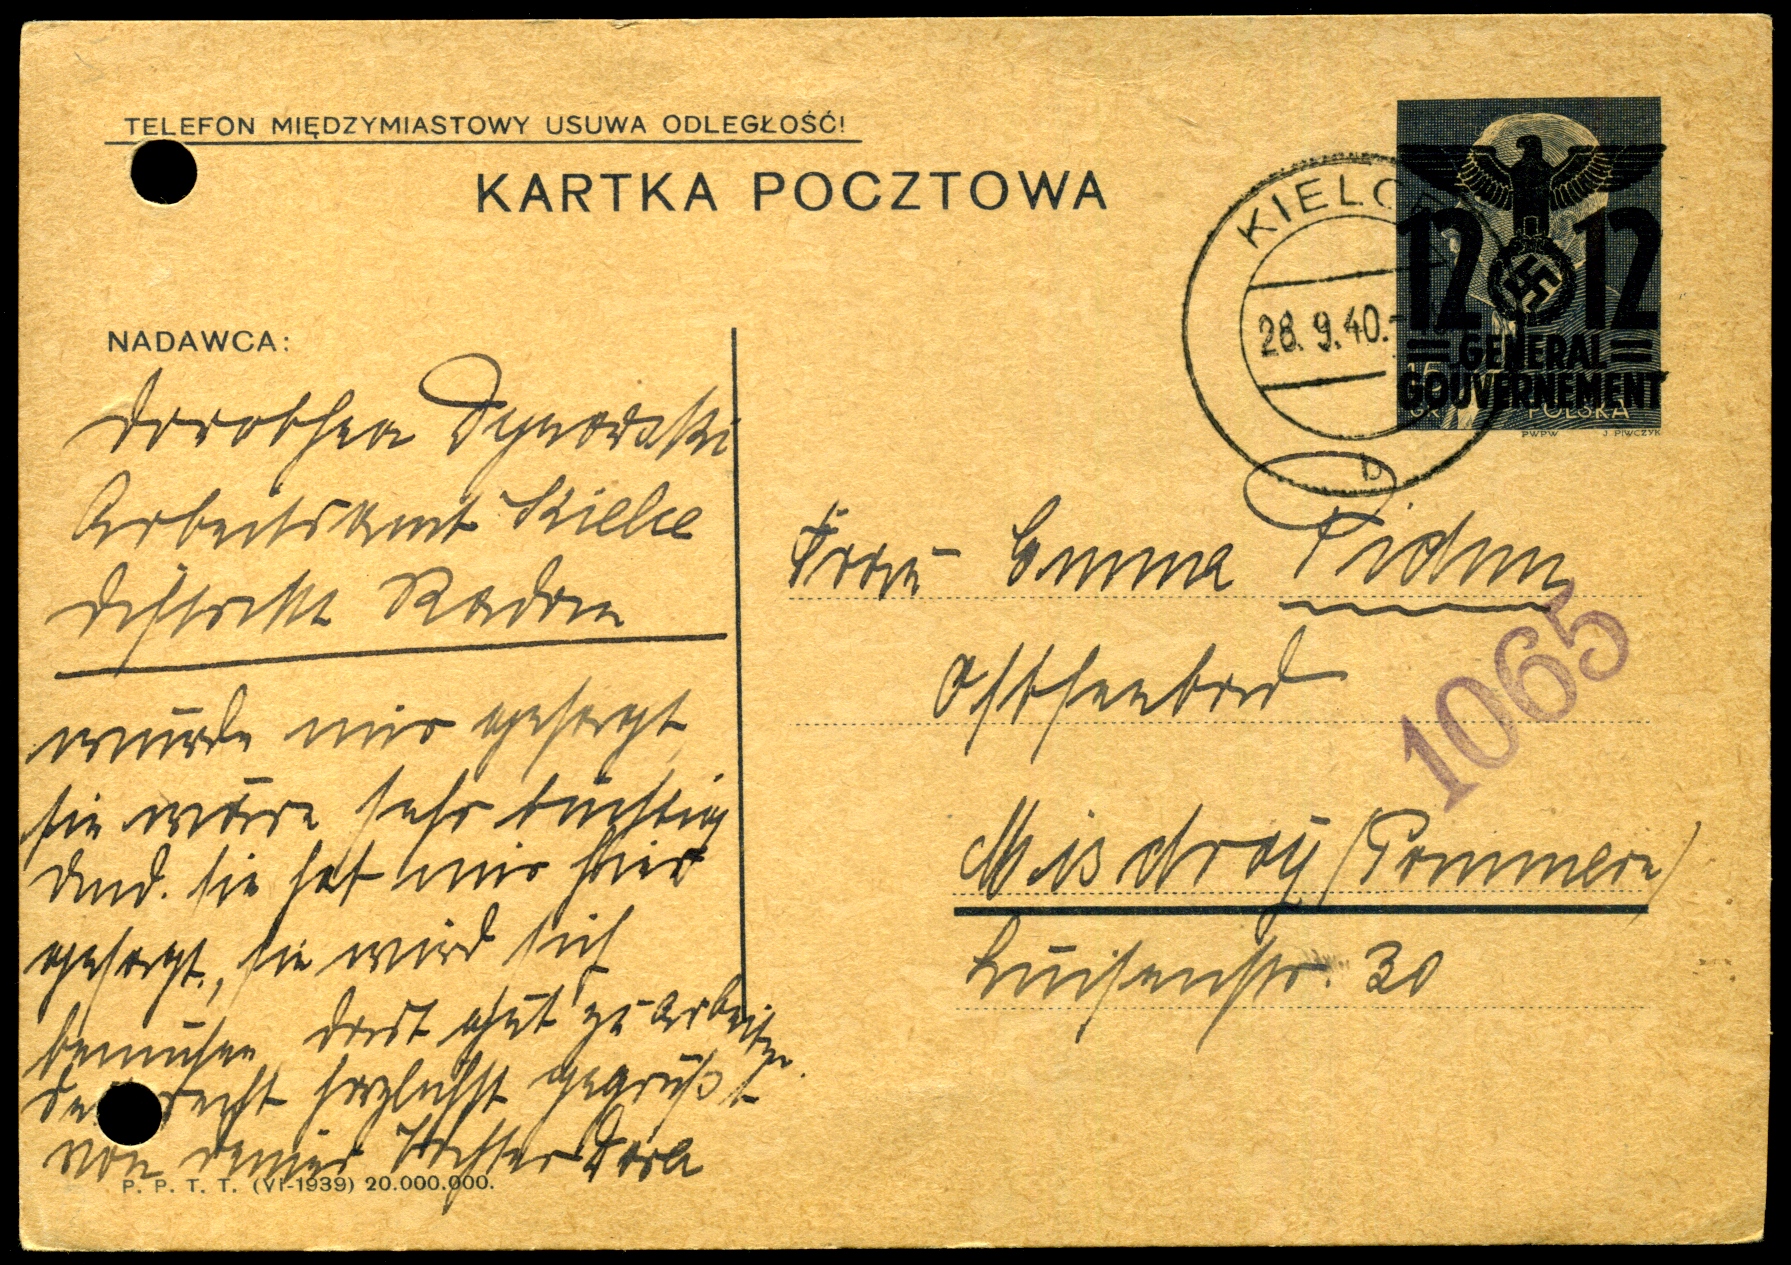 TELEFON MIĘDZYMIASTOWY USUWA ODLEGŁOŚĆ!
KARTKA POCZTOWA
KIELCE
28. 9. 40.
b
12 12
GENERAL
GOUVERNEMENT
GR POLSKA
PWPW J. PIWCZYK
NADAWCA:
Dorothea
Arbeitsamt Kielce
Distrikt Radom
wurde mir gesagt,
sie wäre sehr tüchtig
und. sie hat mir hier
gesagt, sie wird sich
bemühen dort gut zu arbeiten.
recht herzlichst gegrüßt
von deiner Tochter Dora
Frau Emma
Ostseebad
1065
Misdroy (Pommern)
Luisenstr. 30
P. P. T. T. (VI-1939) 20.000.000.